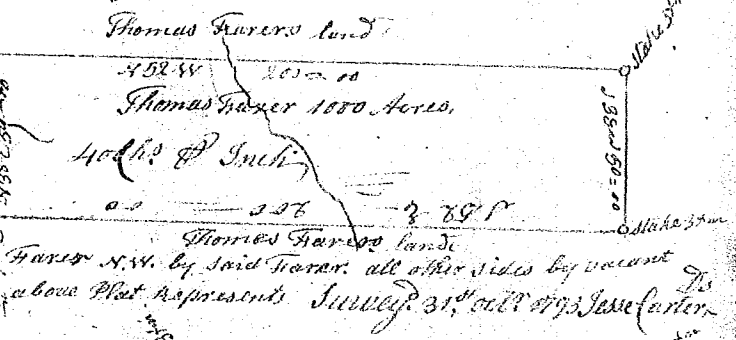 Thomas Farers land
Stake 3
N 52 W 200 = 00
Thomas Farer 1000 Acres,
S 38 W 50 = 00
40 Chs Pr Inch
00 200 S 52 E
Stake 3
Thomas Farers land
Farer N.W. by said Farer. all other sides by vacant
above Plat Represents Surveyd. 31st octr. 1793 Jesse Carter
Ds